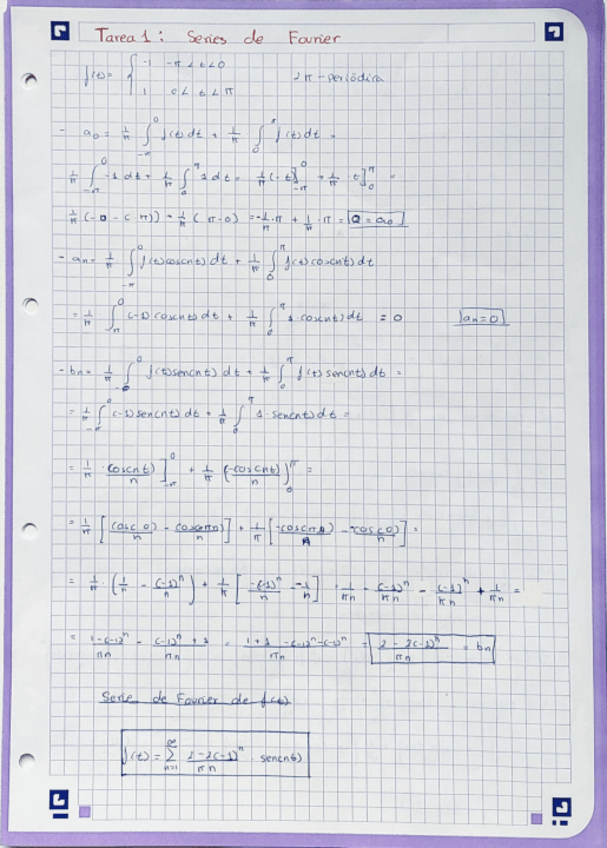 Tarea 1: Series de Fourier
f(t) = { -1 -π < t < 0
1 0 < t < π 2π-periódica
- a₀ = 1/π ∫_{-π}^{0} f(t) dt + 1/π ∫_{0}^{π} f(t) dt =
1/π ∫_{-π}^{0} -1 dt + 1/π ∫_{0}^{π} 1 dt = 1/π (-t]_{-π}^{0} + 1/π · t]_{0}^{π} =
1/π (-0 - (π)) + 1/π (π-0) = -1/π · π + 1/π · π = 0 = a₀
- an = 1/π ∫_{-π}^{0} f(t) cos(nt) dt + 1/π ∫_{0}^{π} f(t) cos(nt) dt
= 1/π ∫_{-π}^{0} (-1) cos(nt) dt + 1/π ∫_{0}^{π} 1 cos(nt) dt = 0 an = 0
- bn = 1/π ∫_{-π}^{0} f(t) sen(nt) dt + 1/π ∫_{0}^{π} f(t) sen(nt) dt =
= 1/π ∫_{-π}^{0} (-1) sen(nt) dt + 1/π ∫_{0}^{π} 1 · sen(nt) dt =
= 1/π · cos(nt)/n ]_{-π}^{0} + 1/π (-cos(nt)/n)]_{0}^{π} =
= 1/π [cos(0)/n - cos(πn)/n] + 1/π [-cos(πn)/n - -cos(0)/n] =
= 1/π · (1/n - (-1)ⁿ/n) + 1/π [-(-1)ⁿ/n - -1/n] = 1/πn - (-1)ⁿ/πn - (-1)ⁿ/πn + 1/πn =
= 1-(-1)ⁿ/πn - (-1)ⁿ+1/πn = 1+1-(-1)ⁿ-(-1)ⁿ/πn = 2-2(-1)ⁿ/πn = bn
Serie de Fourier de f(t)
f(t) = Σ_{n=1}^{∞} 2-2(-1)ⁿ/πn · sen(nt)